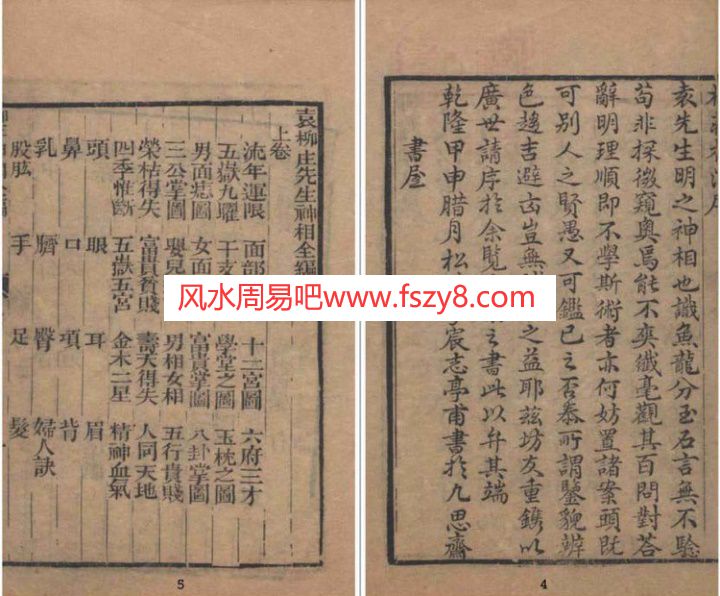 袁先生明之神相也識魚龍分玉石言無不驗
苟非探微窺奧焉能不爽纖毫觀其百問對答
辭明理順即不學斯術者亦何妨置諸案頭既
可別人之賢愚又可鑑已之否泰所謂鑒貌辨
色趨吉避凶豈無之益耶茲坊友重鐫以
廣世請序於余覽之書此以弁其端
乾隆甲申腊月松宸志亭甫書於九思齋
書屋
4
袁柳庄先生神相全編
上卷
流年運限 面部 十二宮圖 六府三才
五嶽九曜 干支 學堂之圖 玉枕之圖
男面痣圖 女面 富貴掌圖 八卦掌圖
三公掌圖 嬰兒 男相女相 五行貴賤
榮枯得失 富貴貧賤 壽夭得失 人同天地
四季惟斷 五嶽五宮 金木二星 精神血氣
頭 眼 耳 眉
鼻 口 項 背
乳 臍 臀 婦人訣
股肱 手 足 髮
5
风水周易吧www.fszy8.com